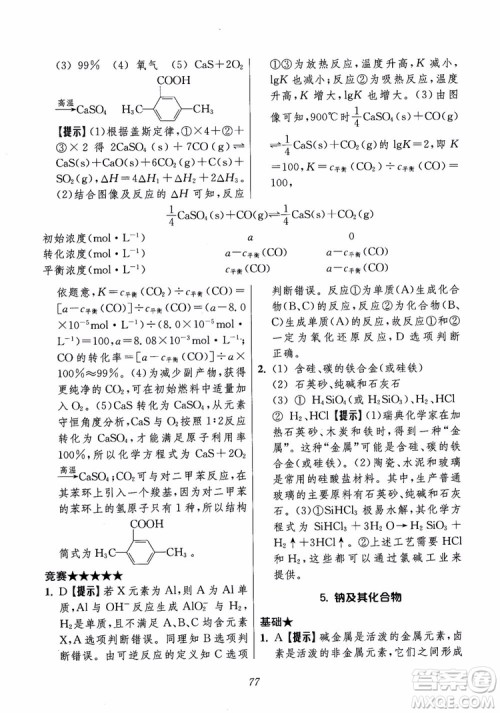 (3) 99％ (4) 氧气 (5) CaS+2O₂
COOH
高温
→CaSO₄ H₃C— —CH₃
【提示】(1)根据盖斯定律，①×4+②+
③×2 得 2CaSO₄(s)+7CO(g)⇌
CaS(s)+CaO(s)+6CO₂(g)+C(s)+
SO₂(g)，ΔH=4ΔH₁+ΔH₂+2ΔH₃。
(2)结合图像及ΔH可知，反应
①③为放热反应，温度升高，K减小，
lgK减小；反应②为吸热反应，温度
升高，K增大，lgK增大。(3)由图
像可知，900℃时 1/4CaSO₄(s)+CO(g)
⇌1/4CaS(s)+CO₂(g)的lgK=2，即K=
100，K=c平衡(CO₂)÷c平衡(CO)=
100。
1/4CaSO₄(s)+CO(g)⇌1/4CaS(s)+CO₂(g)
初始浓度(mol·L⁻¹) a 0
转化浓度(mol·L⁻¹) a−c平衡(CO) a−c平衡(CO)
平衡浓度(mol·L⁻¹) c平衡(CO) a−c平衡(CO)
依题意，K=c平衡(CO₂)÷c平衡(CO)=
[a−c平衡(CO)]÷c平衡(CO)=(a−8.0
×10⁻⁵mol·L⁻¹)÷(8.0×10⁻⁵mol
·L⁻¹)=100，a=8.08×10⁻³mol·L⁻¹；
CO的转化率=[a−c平衡(CO)]÷a×
100％≈99％。(4)为减少副产物，获得
更纯净的CO₂，可在初始燃料中适量
加入氧气。(5)CaS→CaSO₄，从元素
守恒角度分析，CaS与O₂在高温下反
应生成CaSO₄，能满足原子利用率
100％，所以化学方程式为CaS+2O₂
高温
→CaSO₄；CO₂可与对二甲苯反应，在
其苯环上引入一个羧基，因对二甲苯
的苯环上的氢原子只有一种，所以结构
COOH
简式为H₃C— —CH₃。
竞赛★★★★★
1. D【提示】若X元素为Al，则反应①为
Al与OH⁻反应生成AlO₂⁻和H₂，则
X可能为Al，A选项判断错误。若X
元素为Si，则反应①为Si与OH⁻、H₂O
反应生成SiO₃²⁻和H₂，则X可能为
Si，B选项判断错误。同理可知，C选项
判断错误。反应①为单质A生成化合
物B(-)，反应②为单质A生成化合物
C(+)，故反应①和②
一定为氧化还原反应，D选项判断
正确。
2. (1) 含硅、碳的铁合金(或硅铁)
(2) 石英砂、纯碱和石灰石
(3) ① SiHCl₃ ② H₄SiO₄(或H₂SiO₃)、
H₂、HCl【提示】(1)瑞典化学家将加
热石英砂、木炭和铁时，得到一种“金
属”，该“金属”应为含硅、碳的铁
合金(或硅铁)。(2)陶瓷、水泥和玻璃
是常用的硅酸盐材料。其中，生产普通
玻璃的主要原料有石英砂、纯碱和石
灰石。(3)①SiHCl₃极易水解，其化
学方程式为SiHCl₃+4H₂O══H₄SiO₄+
H₂↑+3HCl↑。②氯气和氢气都是生
产高纯硅的原料，它们可以通过氯碱工
业来制备。
5. 钠及其化合物
基础★
1. A【提示】碱金属是活泼的金属元素，卤
素是活泼的非金属元素，它们之间形成
77